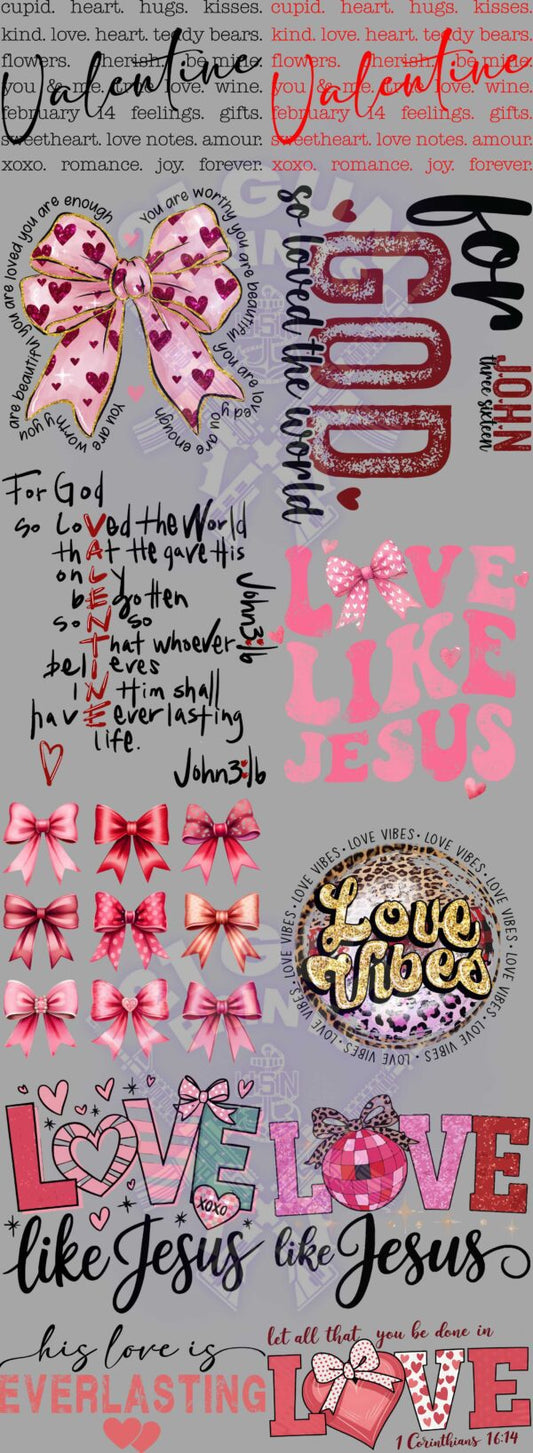 cupid. heart. hugs. kisses.
kind. love. heart. teddy bears.
flowers. cherish. be mine.
you & me. true love. wine.
february 14 feelings. gifts.
sweetheart. love notes. amour.
xoxo. romance. joy. forever.
Valentine
cupid. heart. hugs. kisses.
kind. love. heart. teddy bears.
flowers. cherish. be mine.
you & me. true love. wine.
february 14 feelings. gifts.
sweetheart. love notes. amour.
xoxo. romance. joy. forever.
Valentine
you are loved you are enough
You are worthy you are beautiful
you are loved
you are enough
You are worthy you
are beautiful
for
GOD
so loved the world
JOHN
three sixteen
For God
so Loved the World
that He gave His
only
begotten
son so
that whoever
believes
in Him shall
have everlasting
life.
John 3:16
John 3:16
LOVE
LIKE
JESUS
LOVE VIBES • LOVE VIBES • LOVE VIBES • LOVE VIBES • LOVE VIBES • LOVE VIBES • LOVE VIBES
Love
Vibes
LOVE
XOXO
like Jesus
LOVE
like Jesus
his love is
EVERLASTING
let all that you be done in
LOVE
1 Corinthians 16:14